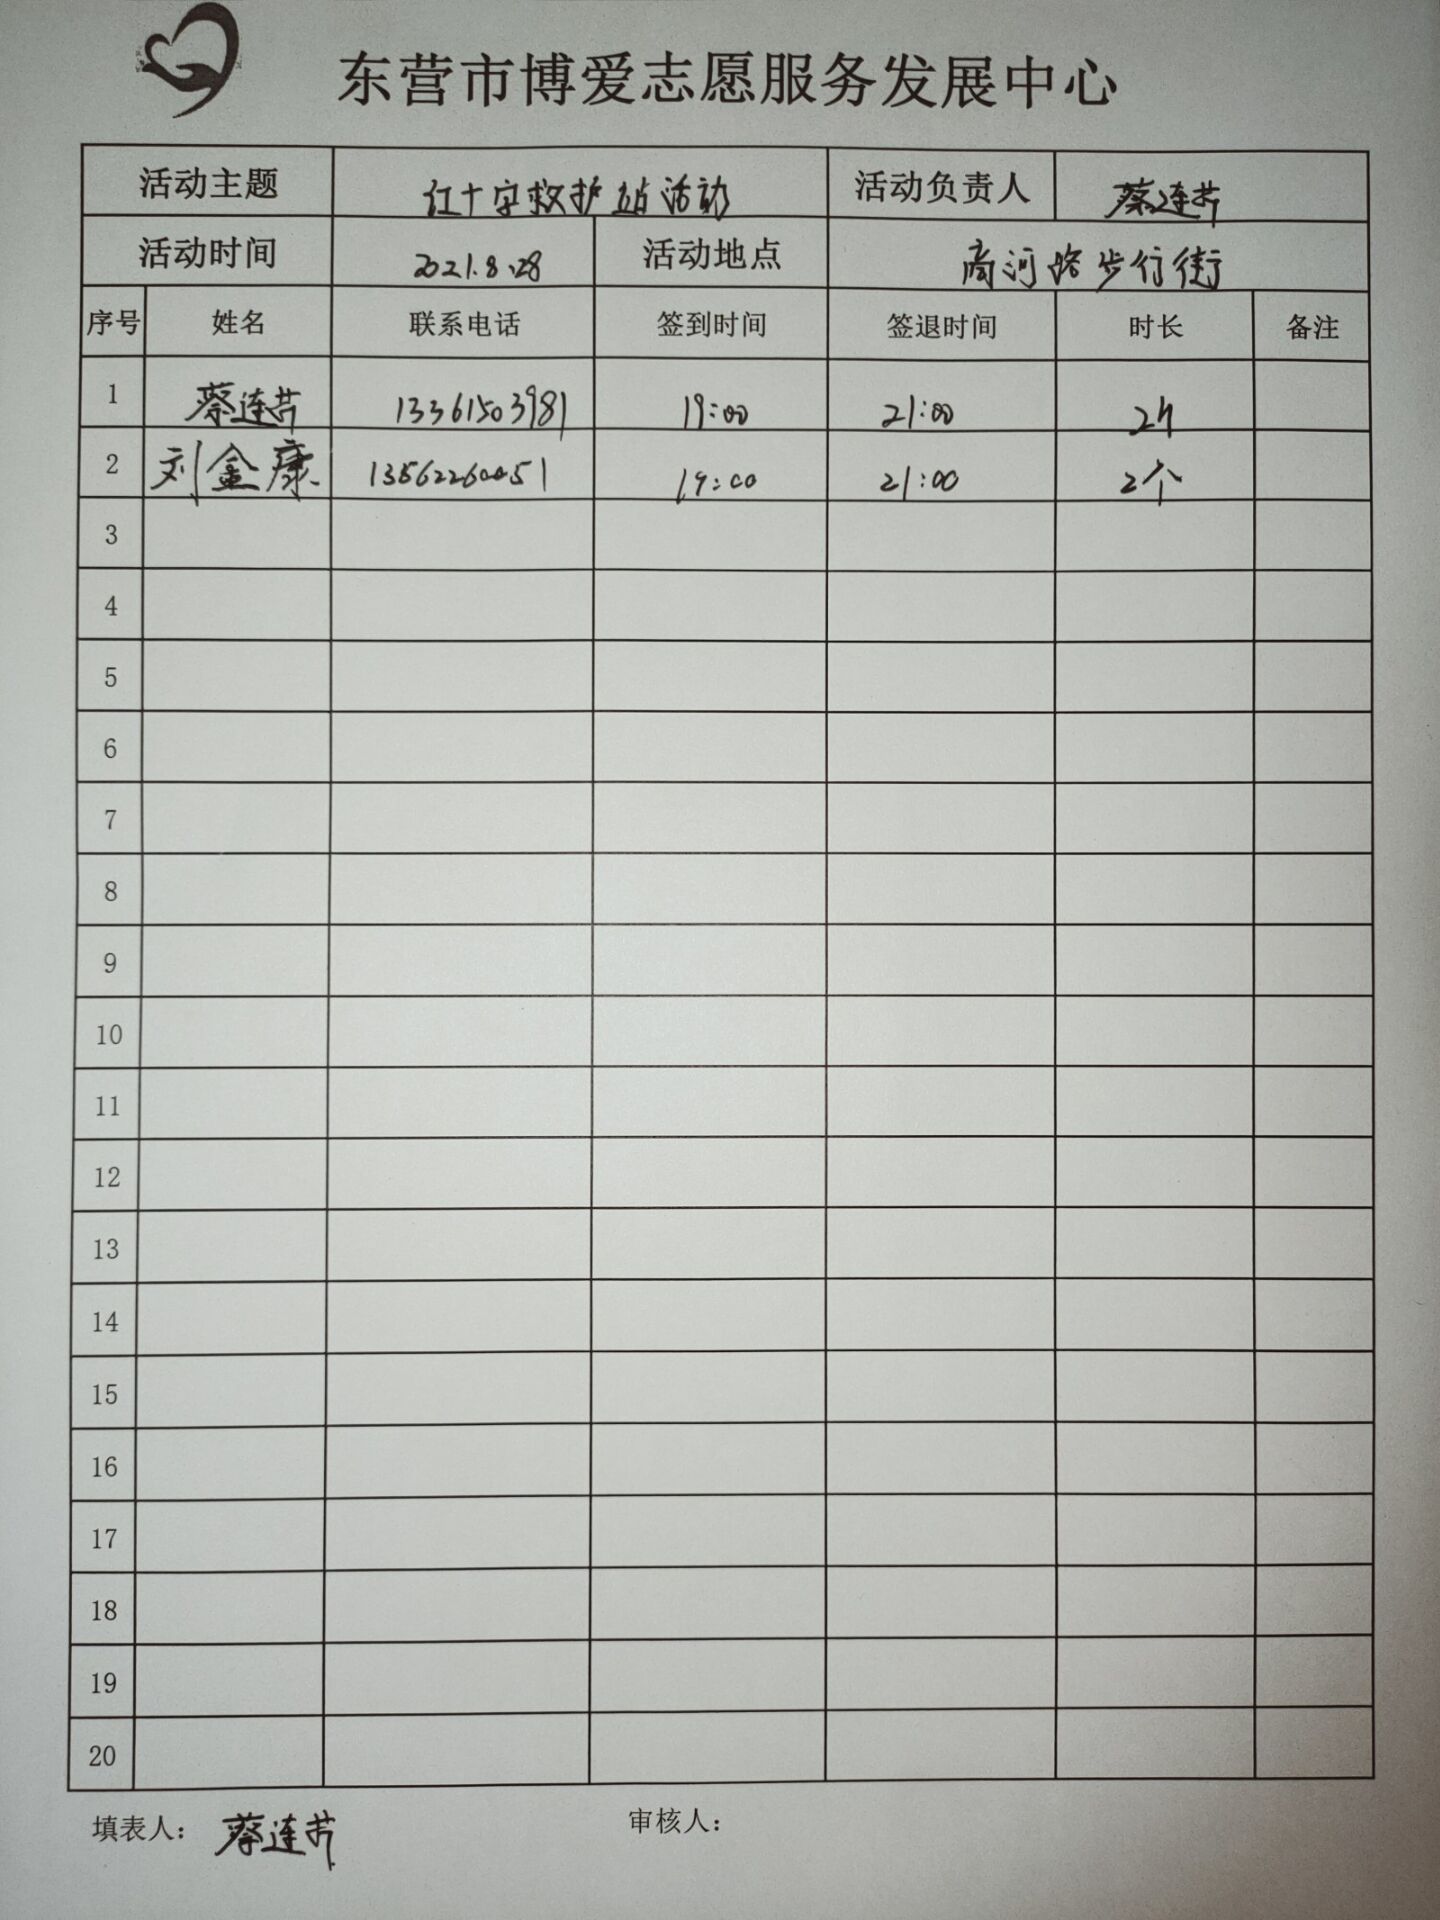 东营市博爱志愿服务发展中心
活动主题 红十字救护站活动 活动负责人 蔡连芹
活动时间 2021.8.28 活动地点 商河路步行街
序号 姓名 联系电话 签到时间 签退时间 时长 备注
1 蔡连芹 13361503981 19:00 21:00 2h
2 刘金康 13562260051 19:00 21:00 2个
3
4
5
6
7
8
9
10
11
12
13
14
15
16
17
18
19
20
填表人： 蔡连芹 审核人：